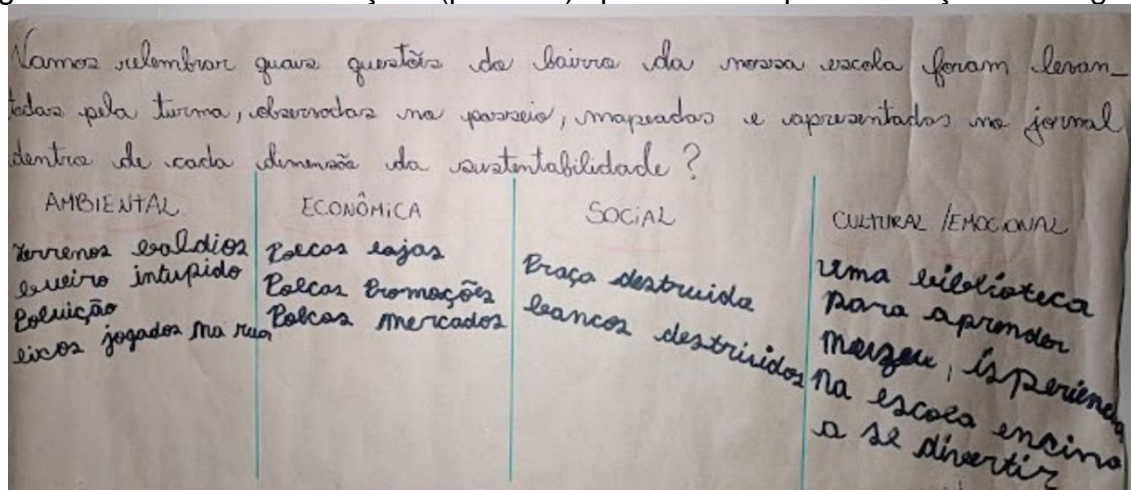 Vamos relembrar quais questões do bairro da nossa escola foram levan-
tadas pela turma, observadas no passeio, mapeadas e apresentadas no jornal
dentro de cada dimensão da sustentabilidade?
AMBIENTAL
terrenos baldios
bueiro intupido
Poluição
lixos jogados na rua
ECONÔMICA
Poucas lojas
Poucas Promoções
Poucos mercados
SOCIAL
Praça destruida
bancos destruidos
CULTURAL /EMOCIONAL
uma biblioteca
para aprender
muzeu, isperiencia
na escola ensino
a se divertir